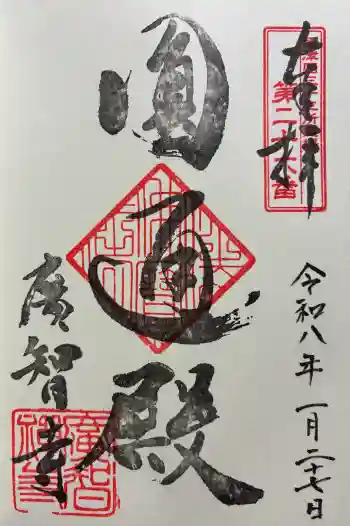 奉拝
第二十六番
圓通殿
廣智寺
令和八年一月二十七日